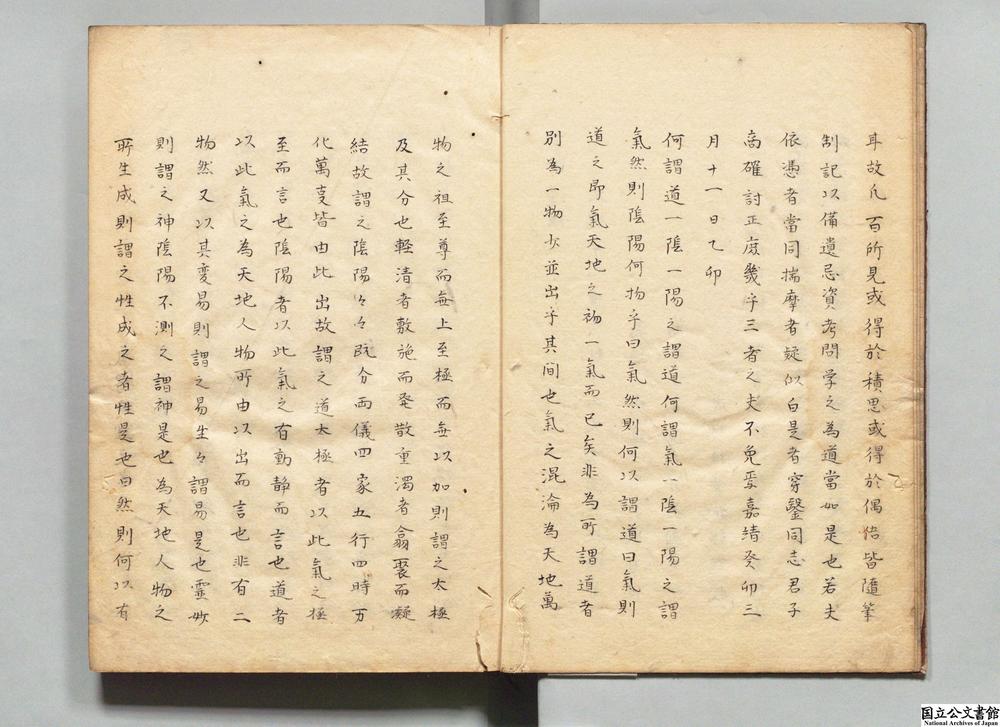 耳故凡百所見或得於積思或得於偶悟皆隨筆
劄記以備遺忘資考問学之為道當如是也若夫
依憑者當同揣摩者疑似自是者穿鑿同志君子
商確討正庶幾乎三者之失不免焉嘉靖癸卯三
月十一日乙卯
何謂道一陰一陽之謂道何謂氣一陰一陽之謂
氣然則陰陽何物乎曰氣然則何以謂道曰氣則
道之即氣天地之初一氣而已矣非為所謂道者
別為一物以並出乎其間也氣之混淪為天地萬
物之祖至尊而無上至極而無以加則謂之太極
及其分也軽清者敷施而發散重濁者翕聚而凝
結故謂之陰陽々々既分兩儀四象五行四時万
化萬変皆由此出故謂之道太極者以此氣之極
至而言也陰陽者以此氣之有動静而言也道者
以此氣之為天地人物所由以出而言也非有二
物然又以其変易則謂之易生々謂易是也霊妙
則謂之神陰陽不測之謂神是也為天地人物之
所生成則謂之性成之者性是也曰然則何以有
国立公文書館
National Archives of Japan